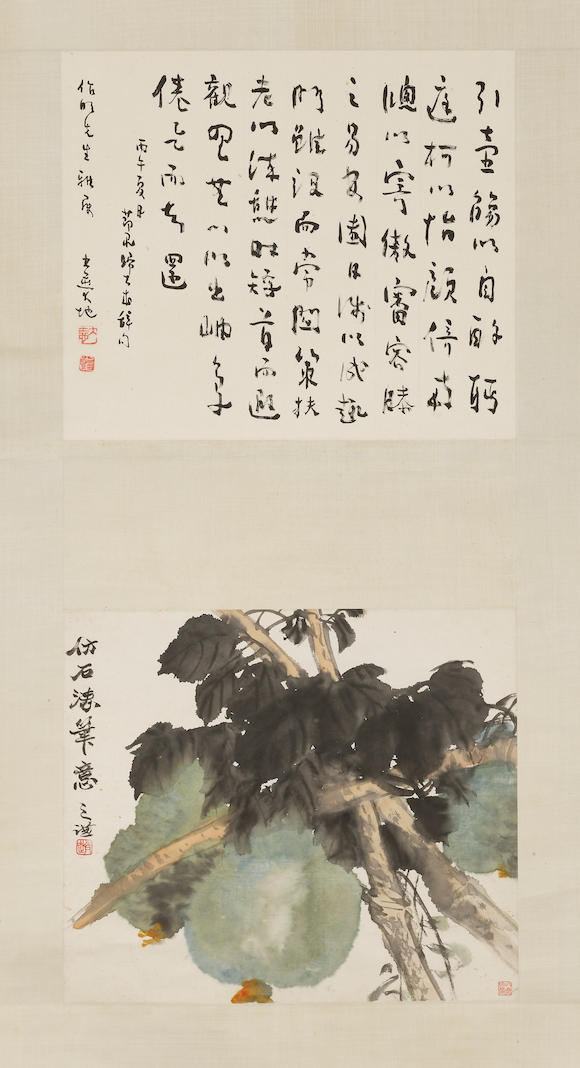 引壺觴以自酌眄
庭柯以怡顏倚南
牕以寄傲審容膝
之易安園日涉以成趣
門雖設而常關策扶
老以流憩時矯首而遐
觀雲無心以出岫鳥
倦飛而知還
丙午夏月
節錄歸去來辭句
先生雅屬
仿石濤筆意